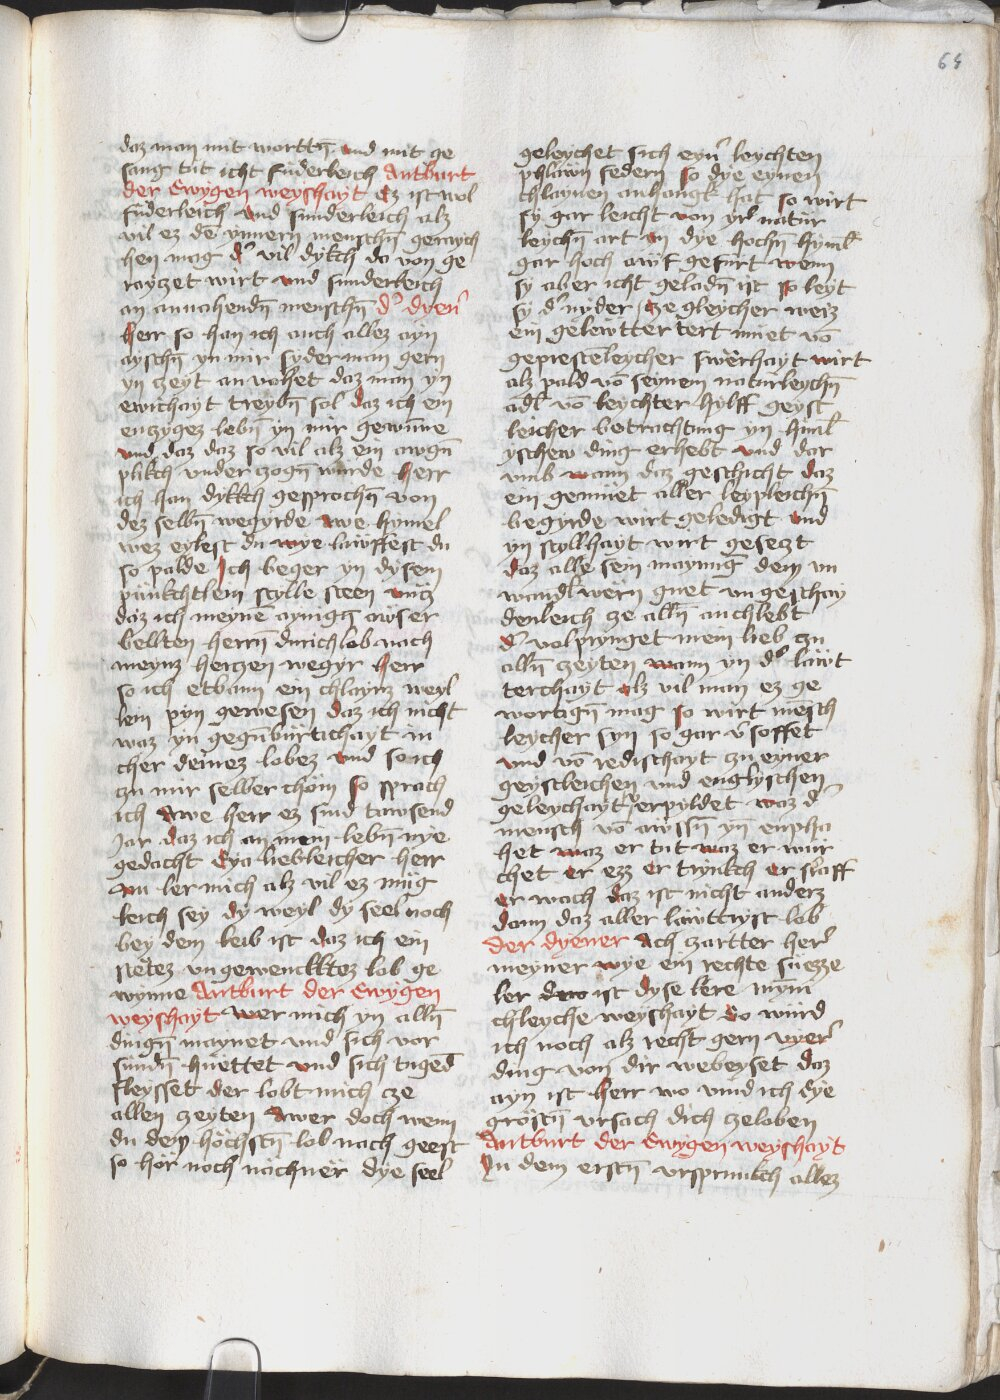 65
daz man mit worttn̄ und mit ge
sang tüt icht füderleich Antburt
der Ewygen weyshayt Ez ist wol
füderleich und sunderleich alz
vil ez dē ynnern menschn̄ geraych
hen mag d' vil dykch da von ge
rayczet wirt und sunderleich
an annahendn̄ menschn̄ d' dyen'
herr so han ich auch allez ayn
ayschn̄ yn mir syder man gern
yn czeyt an vahet daz man yn
ewichayt treybn̄ sol daz ich ein
enczygez lebn̄ yn mir gewūne
und daz daz so vil alz ein awgn̄
plikch under czogn̄ wurde herr
ich han dykkch gesprochn̄ von
dez selbn̄ wegyrde Awe hymel
wez eylest du wye lawffest du
so palde Ich beger yn dysem
pünkchtlein stylle steen üncz
daz ich meynē aynign̄ awser
belten herrn̄ durich lob nach
meynz herczen wegyr herr
so ich etbann ein chlaynz weyl
lein pyn gewesen daz ich nicht
waz yn gegn̄bürtichayt in
cher deinez lobez und so ich
zu mir selber chöm so sprach
ich Awe herr ez sind tawsend
Jar daz ich an mein lebn̄ nye
gedacht Eya liebleicher herr
nu ler mich alz vil ez müg
leich sey dy weyl dy seel noch
bey dem leib ist daz ich ein
stëtez ungewenckktez lob ge
wynne Antburt der Ewygen
weyshayt wer mich yn alln̄
dingn̄ maynet und sich vor
sündn̄ hüettet und sich tugēd
fleysset der lobt mich cze
allen czeyten Awer doch wenn
du deÿ höchstn̄ lob nach geest
so hör noch nächner dye seel
geleychet sich eyn' leychten
phlawm federn so dye eynen
chlaynen anhangk hat so wirt
sy gar leicht von yr' natür
leychn̄ art in dye hochn̄ hyml'
gar hoch awf gefürt wenn
sy aber icht geladn̄ ist so leyt
sy d' nyder Cze gleycher weiz
ein gelewtter tert müet vō
geprestēleycher swërhayt wirt
alz pald vō seynem natürleychn̄
adl' vō leychter hylff geyst
leicher betrachtung yn himl'
yschew ding erhebt und dar
umb wann daz geschicht daz
ein gemüet aller leypleichn̄
begyrde wirt geledigt und
yn styllhayt wirt geseczt
daz alle sein maynūg dem un
wandl'wern guet un geschay
denleich ze alln̄ anchlebt
d' volprynget mein lieb zu
alln̄ czeyten wann yn d' lawt
terchayt alz vil man ez ge
wortign̄ mag so wirt mēsch
leycher syn so gar v'soffet
und vō redischayt zu eyner
geystleichen und englyschen
geleychayt verpyldet waz d'
mensch vō awssn̄ yn enpha
het waz er tut waz er wür
chet er ezz er trynkch er slaff
er wach daz ist nicht anderz
dann daz aller lawttryst lob
der dyener Ach czartter her'
meyner wye ein rechte süezze
ler dwo ist dyse lere mȳni
chleyche weyshayt So würd
ich noch alz recht gern vyer'
ding von dir webeyset daz
ayn ist herr wo vind ich dye
gröstn̄ ursach dich zeloben
Antburt der Ewygen weyshayt
Yn dem erstn̄ ursprunkch allez